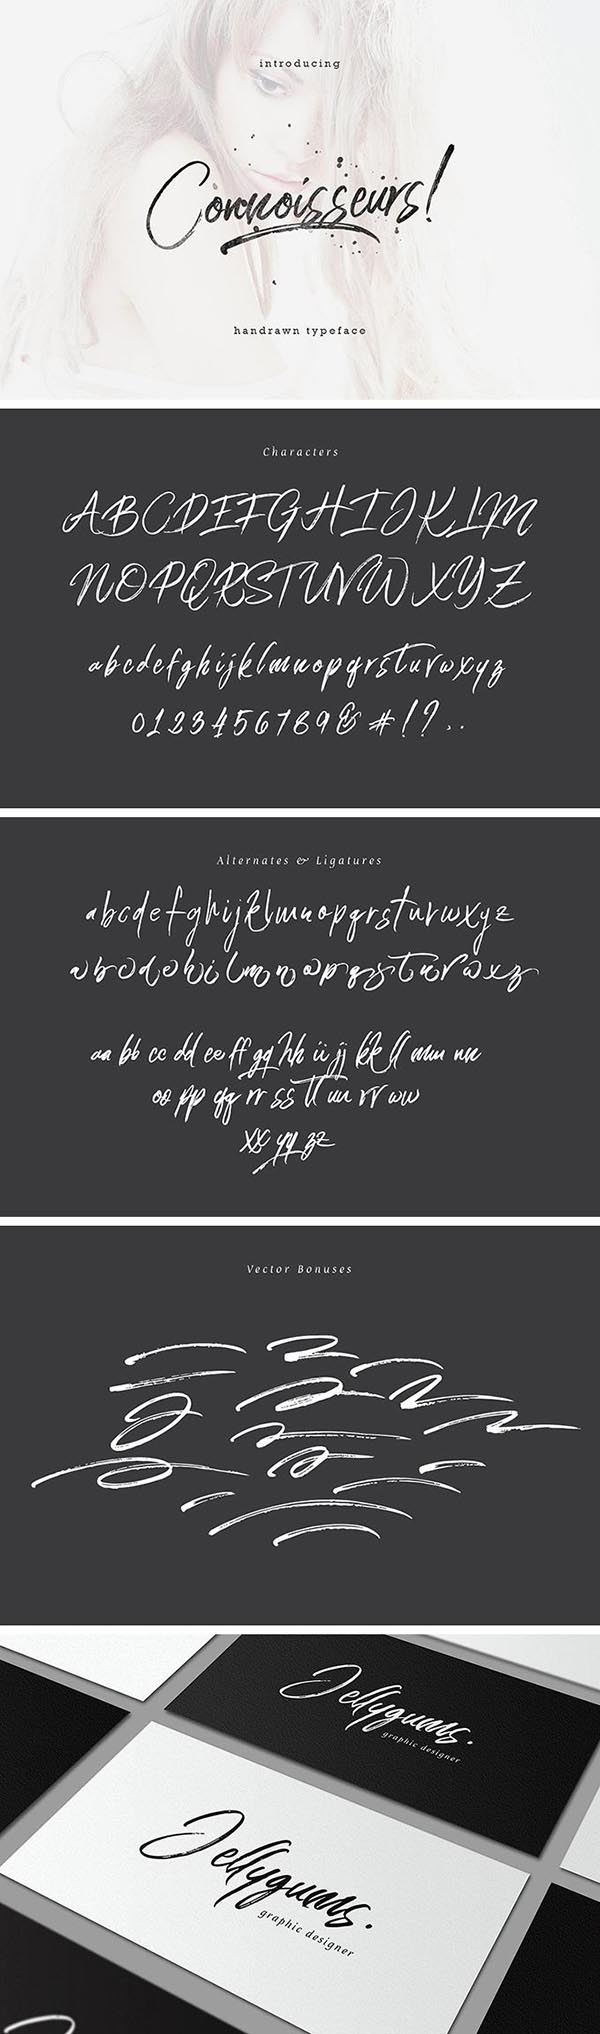 introducing
Connoisseurs!
handrawn typeface
Characters
ABCDEFGHIJKLM
NOPQRSTUVWXYZ
abcdefghijklmnopqrstuvwxyz
0123456789&#!?,.
Alternates & Ligatures
abcdefghijklmnopqrsturwxyz
abcdehilmnopqrsturwxz
aa bb cc dd ee ff gg hh ii jj kk ll mm nn
oo pp qq rr ss tt uu vv ww
xx yy zz
Vector Bonuses
Jellygums.
graphic designer
Jellygums.
graphic designer